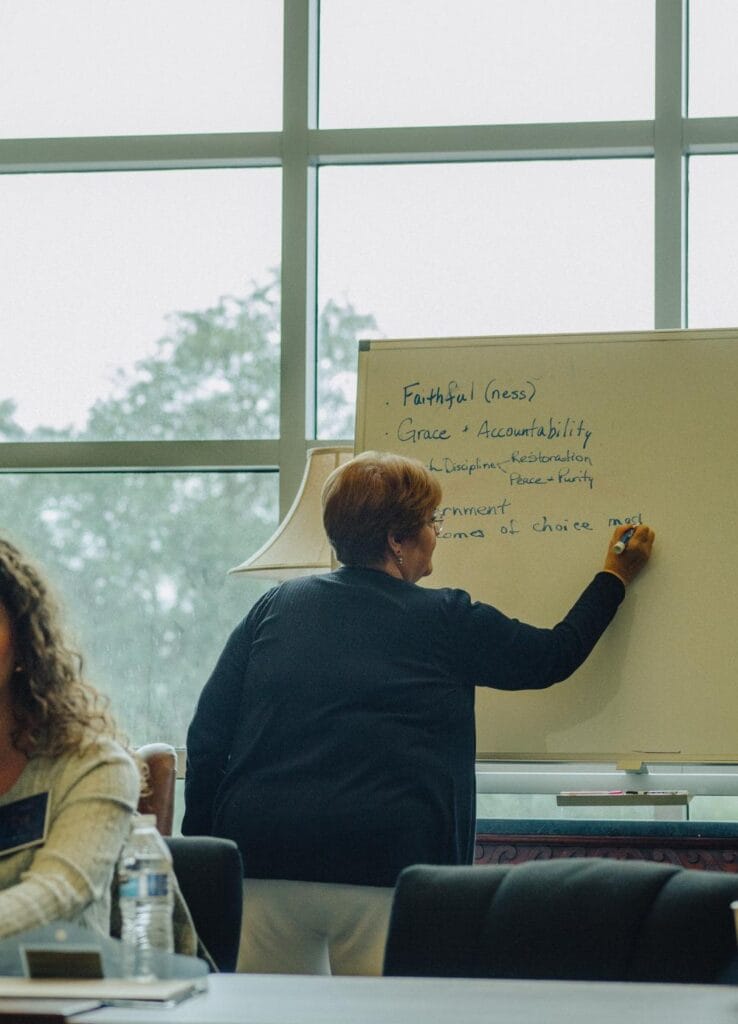 · Faithful (ness)
· Grace + Accountability
Discipline Restoration
Peace + Purity
of choice